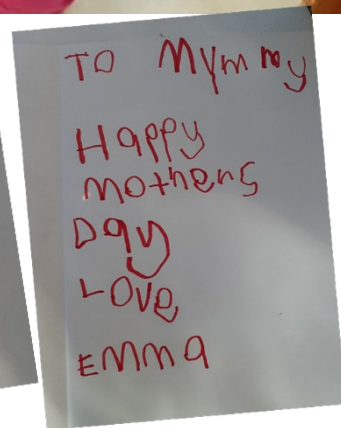 TO Mymmy
Happy
mothers
Day
Love
Emma